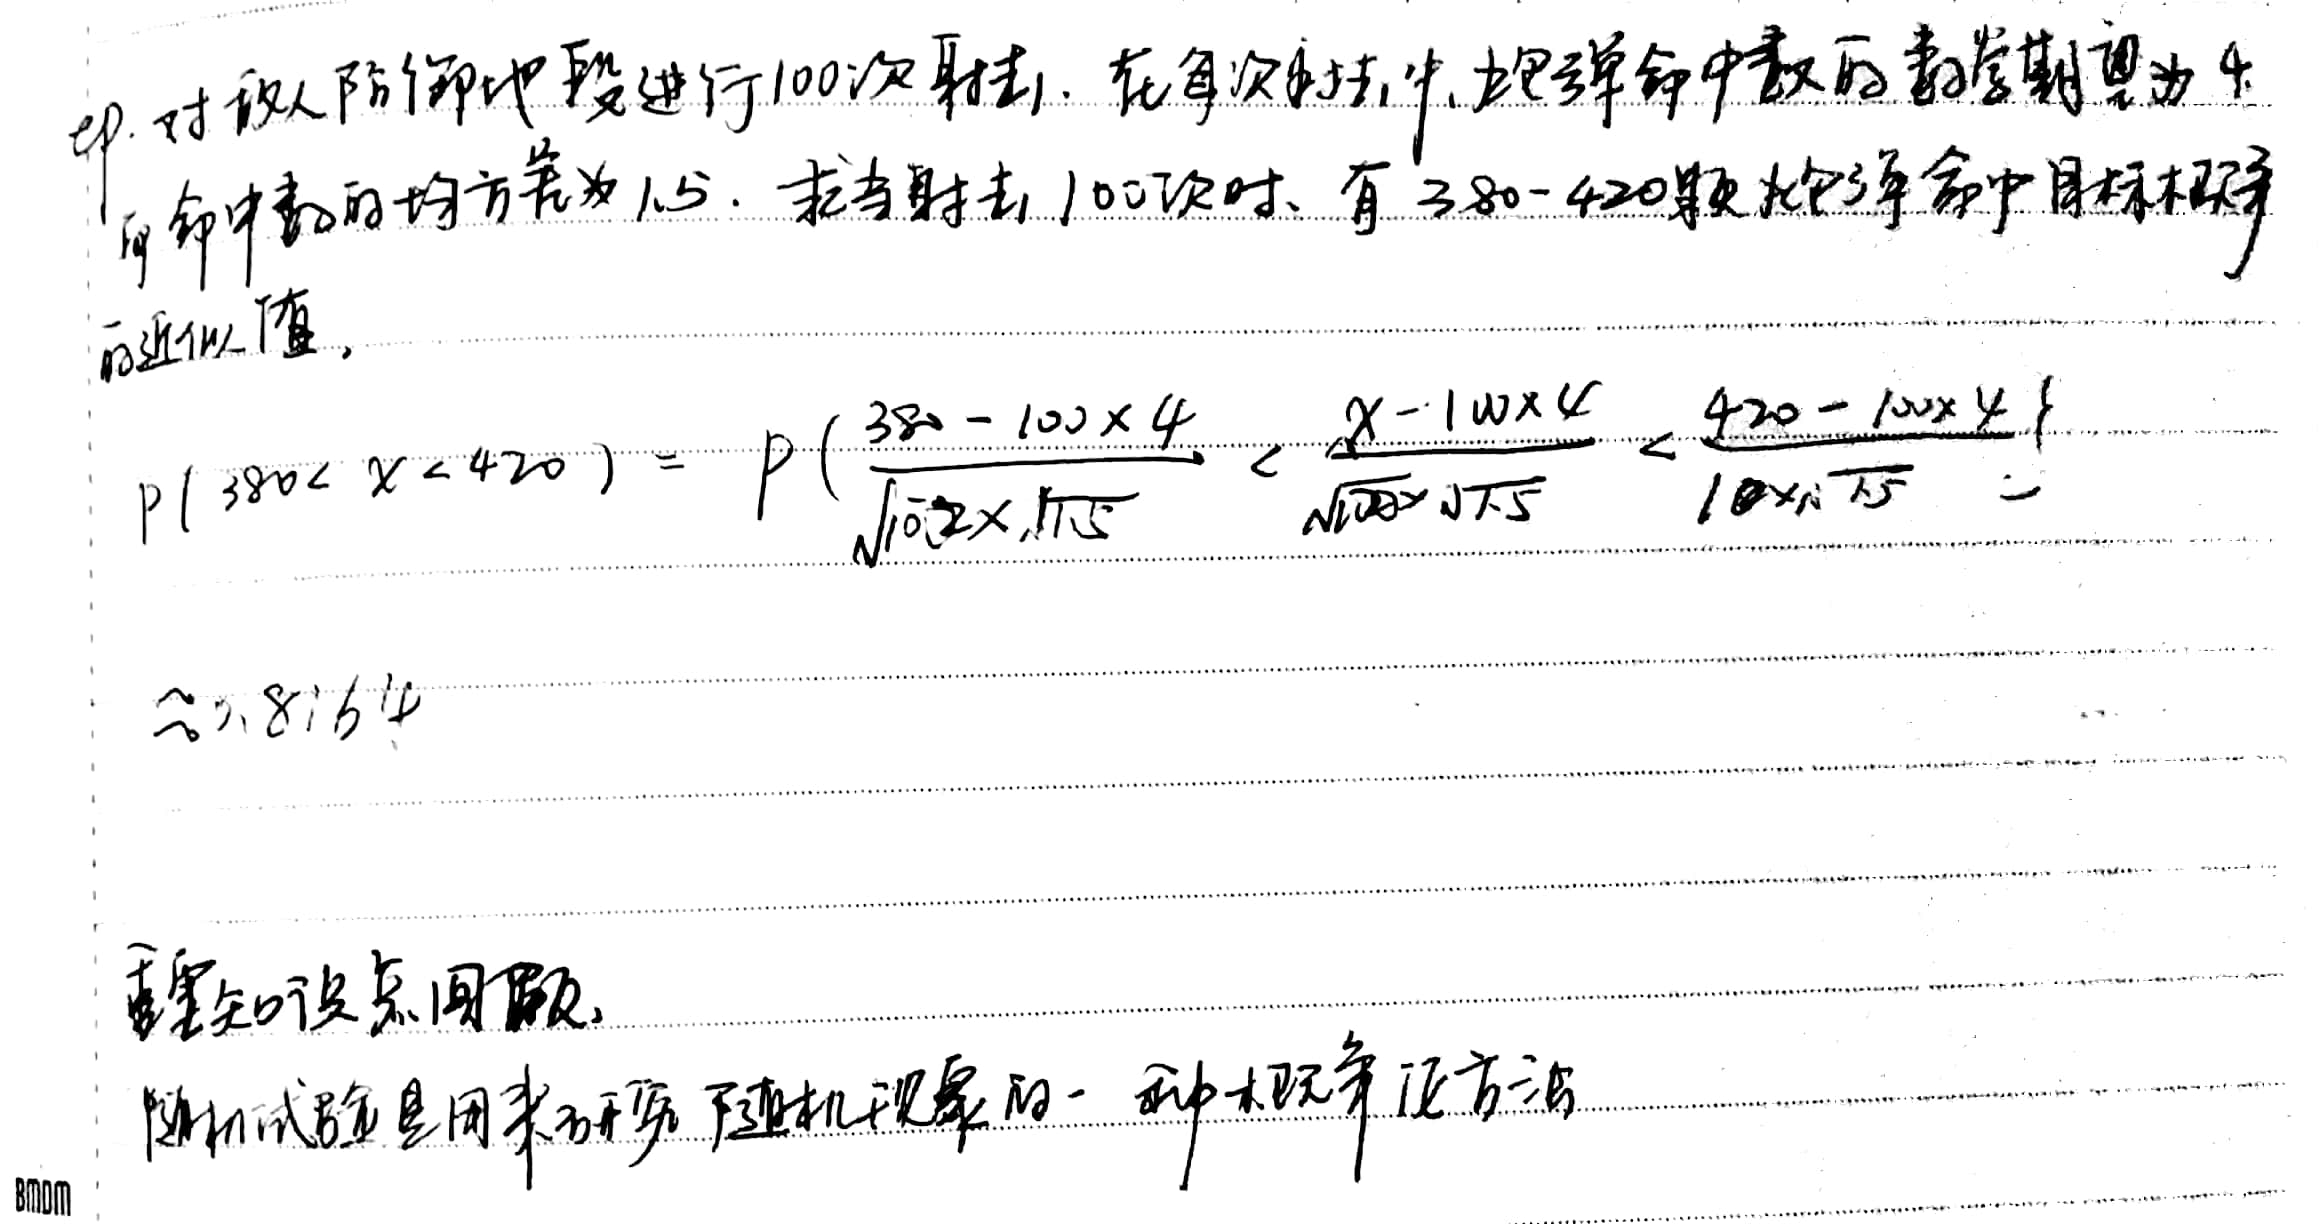 ep. 对敌人防御地段进行100次射击. 在每次射击中、炮弹命中数的数学期望为4.
而命中数的均方差为1.5. 求当射击100次时、有380-420颗炮弹命中目标概率
的近似值,
P( 380 < X < 420 ) = P ( (380-100×4)/(√100×√1.5) < (X-100×4)/(√100×√1.5) < (420-100×4)/(10×√1.5) } =
≈0.8164
重要知识点回顾,
随机试验是用来研究随机现象的一种概率论方法
BMDM